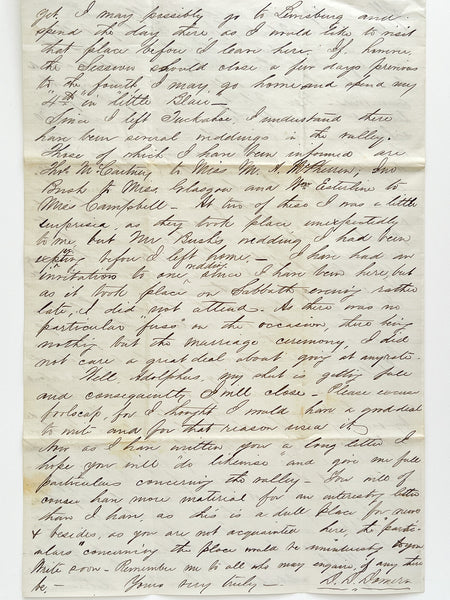 yet. I may possibly go to Lewisburg and
spend the day there as I would like to visit
that place before I leave here. If, however
the Session should close a few days previous
to the fourth, I may, go home and spend my
"4th" in "little Blair —
Since I left Tuckahoe, I understand there
have been several weddings in the valley.
Those of which I have been informed are
McCartney to Miss M. J. Jno
Bush to Miss. Glasgow and Wm to
Miss Campbell — At two of these I was a little
surprised, as they took place unexpectedly
to me, but Mr Bush's wedding, I had been
before I left home. — I have had an
invitation to one wedding since I have been here, but
as it took place on Sabbath evening rather
late, I did not attend. As there was no
particular "fuss" on the occasion, there being
nothing but the marriage ceremony, I did
not care a great deal about going at anyrate.
Well, Adolphus, my sheet is getting full
and consequently I will close — Please excuse
foolscap, for I thought I would have a good deal
to write and for that reason used it
Now as I have written you a long letter I
hope you will "do likewise" and give me full
particulars concerning the valley — You will of
course have more material for an interesting letter
than I have, as this is a dull place for news
& besides, as you are not acquainted here, the "parti-
culars" concerning the place would be uninteresting to you
Write soon — Remember me to all who may enquire, if any there
be. — Yours very truly —